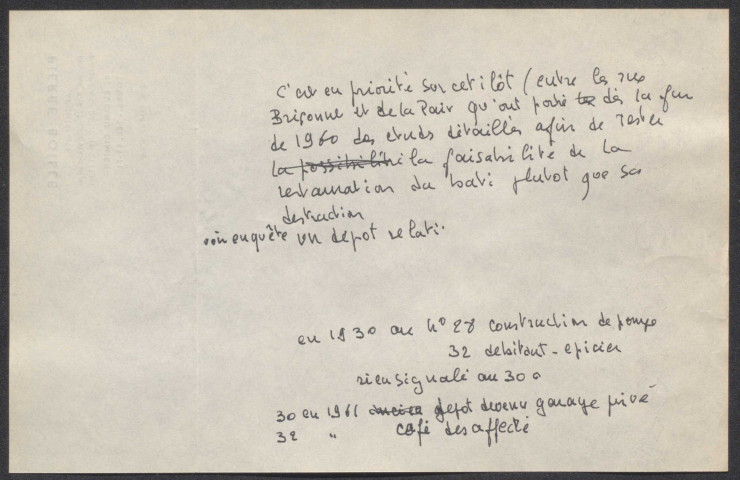 C'est en priorité sur cet ilôt (entre les rues
Briçonnet et de la Paix qu'ont porté dès la fin
de 1960 des études détaillés afin de tester
la possibilité la faisabilité de la
restauration du bati plutot que sa
destruction
voir enquête un depot relati.
en 1930 au n° 28 construction de pompe
32 debitant - epicier
rien signalé au 30
30 en 1961 ancien depot devenu garage privé
32 " café desaffecté
PIERRE BOILLE